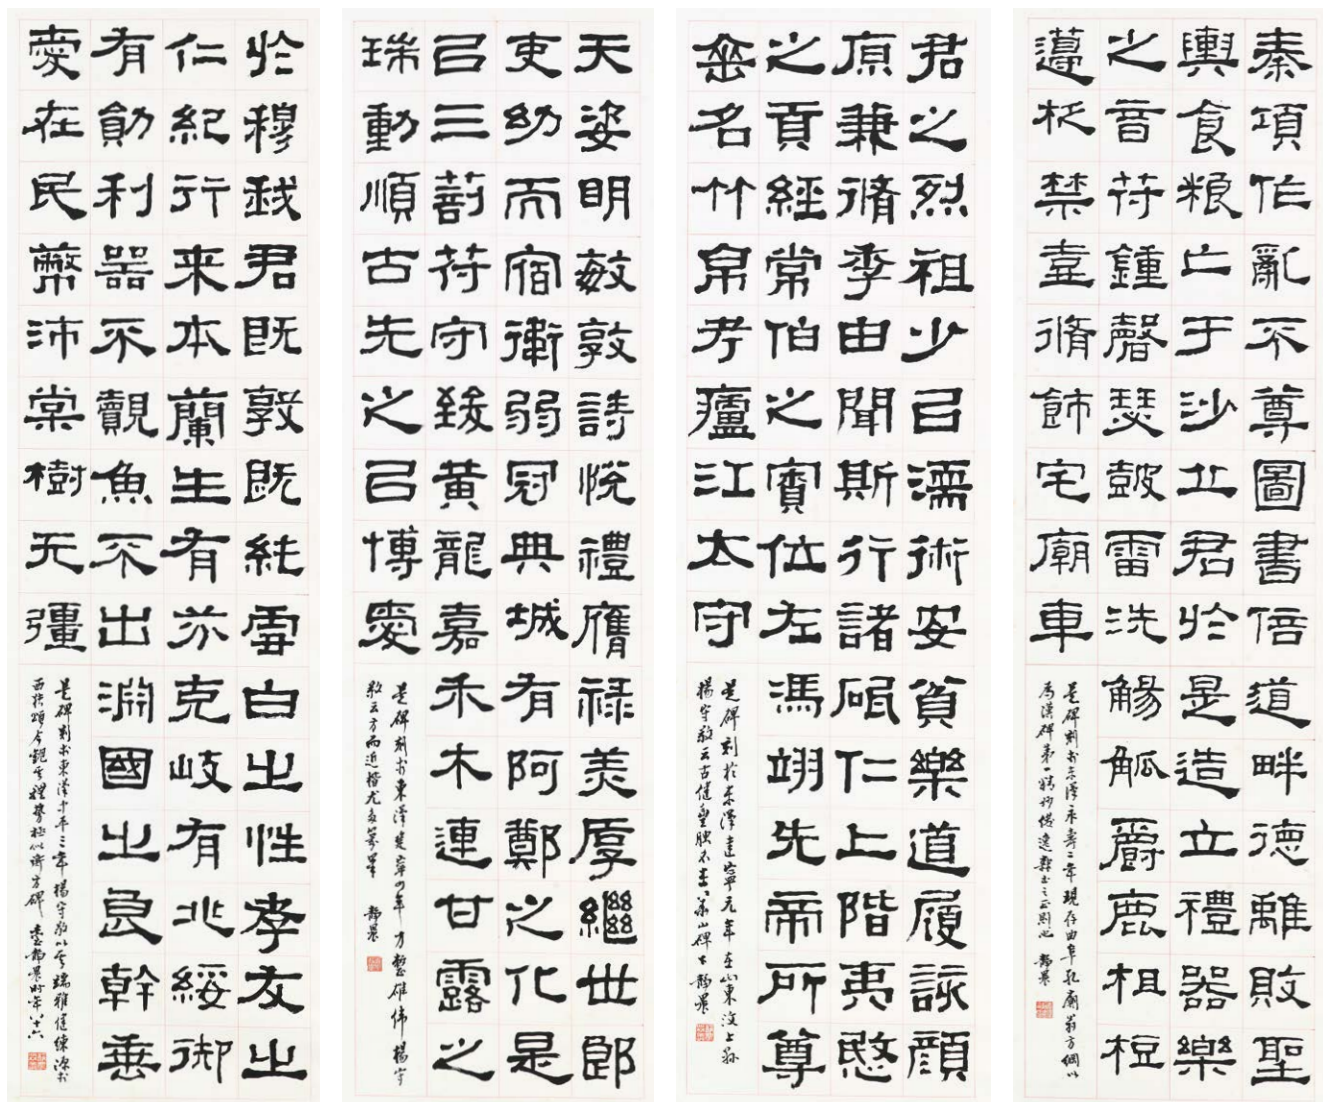 秦項作亂不尊圖書倍道畔德離敗聖
輿食粮亡于沙丘君於是造立禮器樂
之音符鍾磬瑟鼓雷洗觴觚爵鹿柤梪
籩柉禁壺脩飾宅廟車
是碑刻於東漢永壽二年現存曲阜孔廟翁方綱以
為漢碑第一
君之烈祖少以濡術安貧樂道履該顏
原兼脩季由聞斯行諸砥仁上階夷愍
之貢經常伯之寮位左馮翊先帝所尊
垂名竹帛考廬江太守
是碑刻於東漢建寧元年在山東汶上
楊守敬云古健豐腴不在華山碑下
天姿明敏敦詩悅禮膺祿美厚繼世郎
吏幼而宿衛弱冠典城有阿鄭之化是
以三剖符守致黃龍嘉禾木連甘露之
珠動順古先之以博愛
是碑刻於東漢建寧四年方整雄偉楊守
敬云方而近楷尤多篆
於穆我君既敦既純雪白之性孝友之
仁紀行来本蘭生有芬克岐有兆綏御
有勛利器不覿魚不出淵國之良幹垂
愛在民蔽沛棠樹无彊
是碑刻於東漢中平三年楊守敬以其端雅健練源於
西狹頌今觀其體勢極似衡方碑 時年八十六